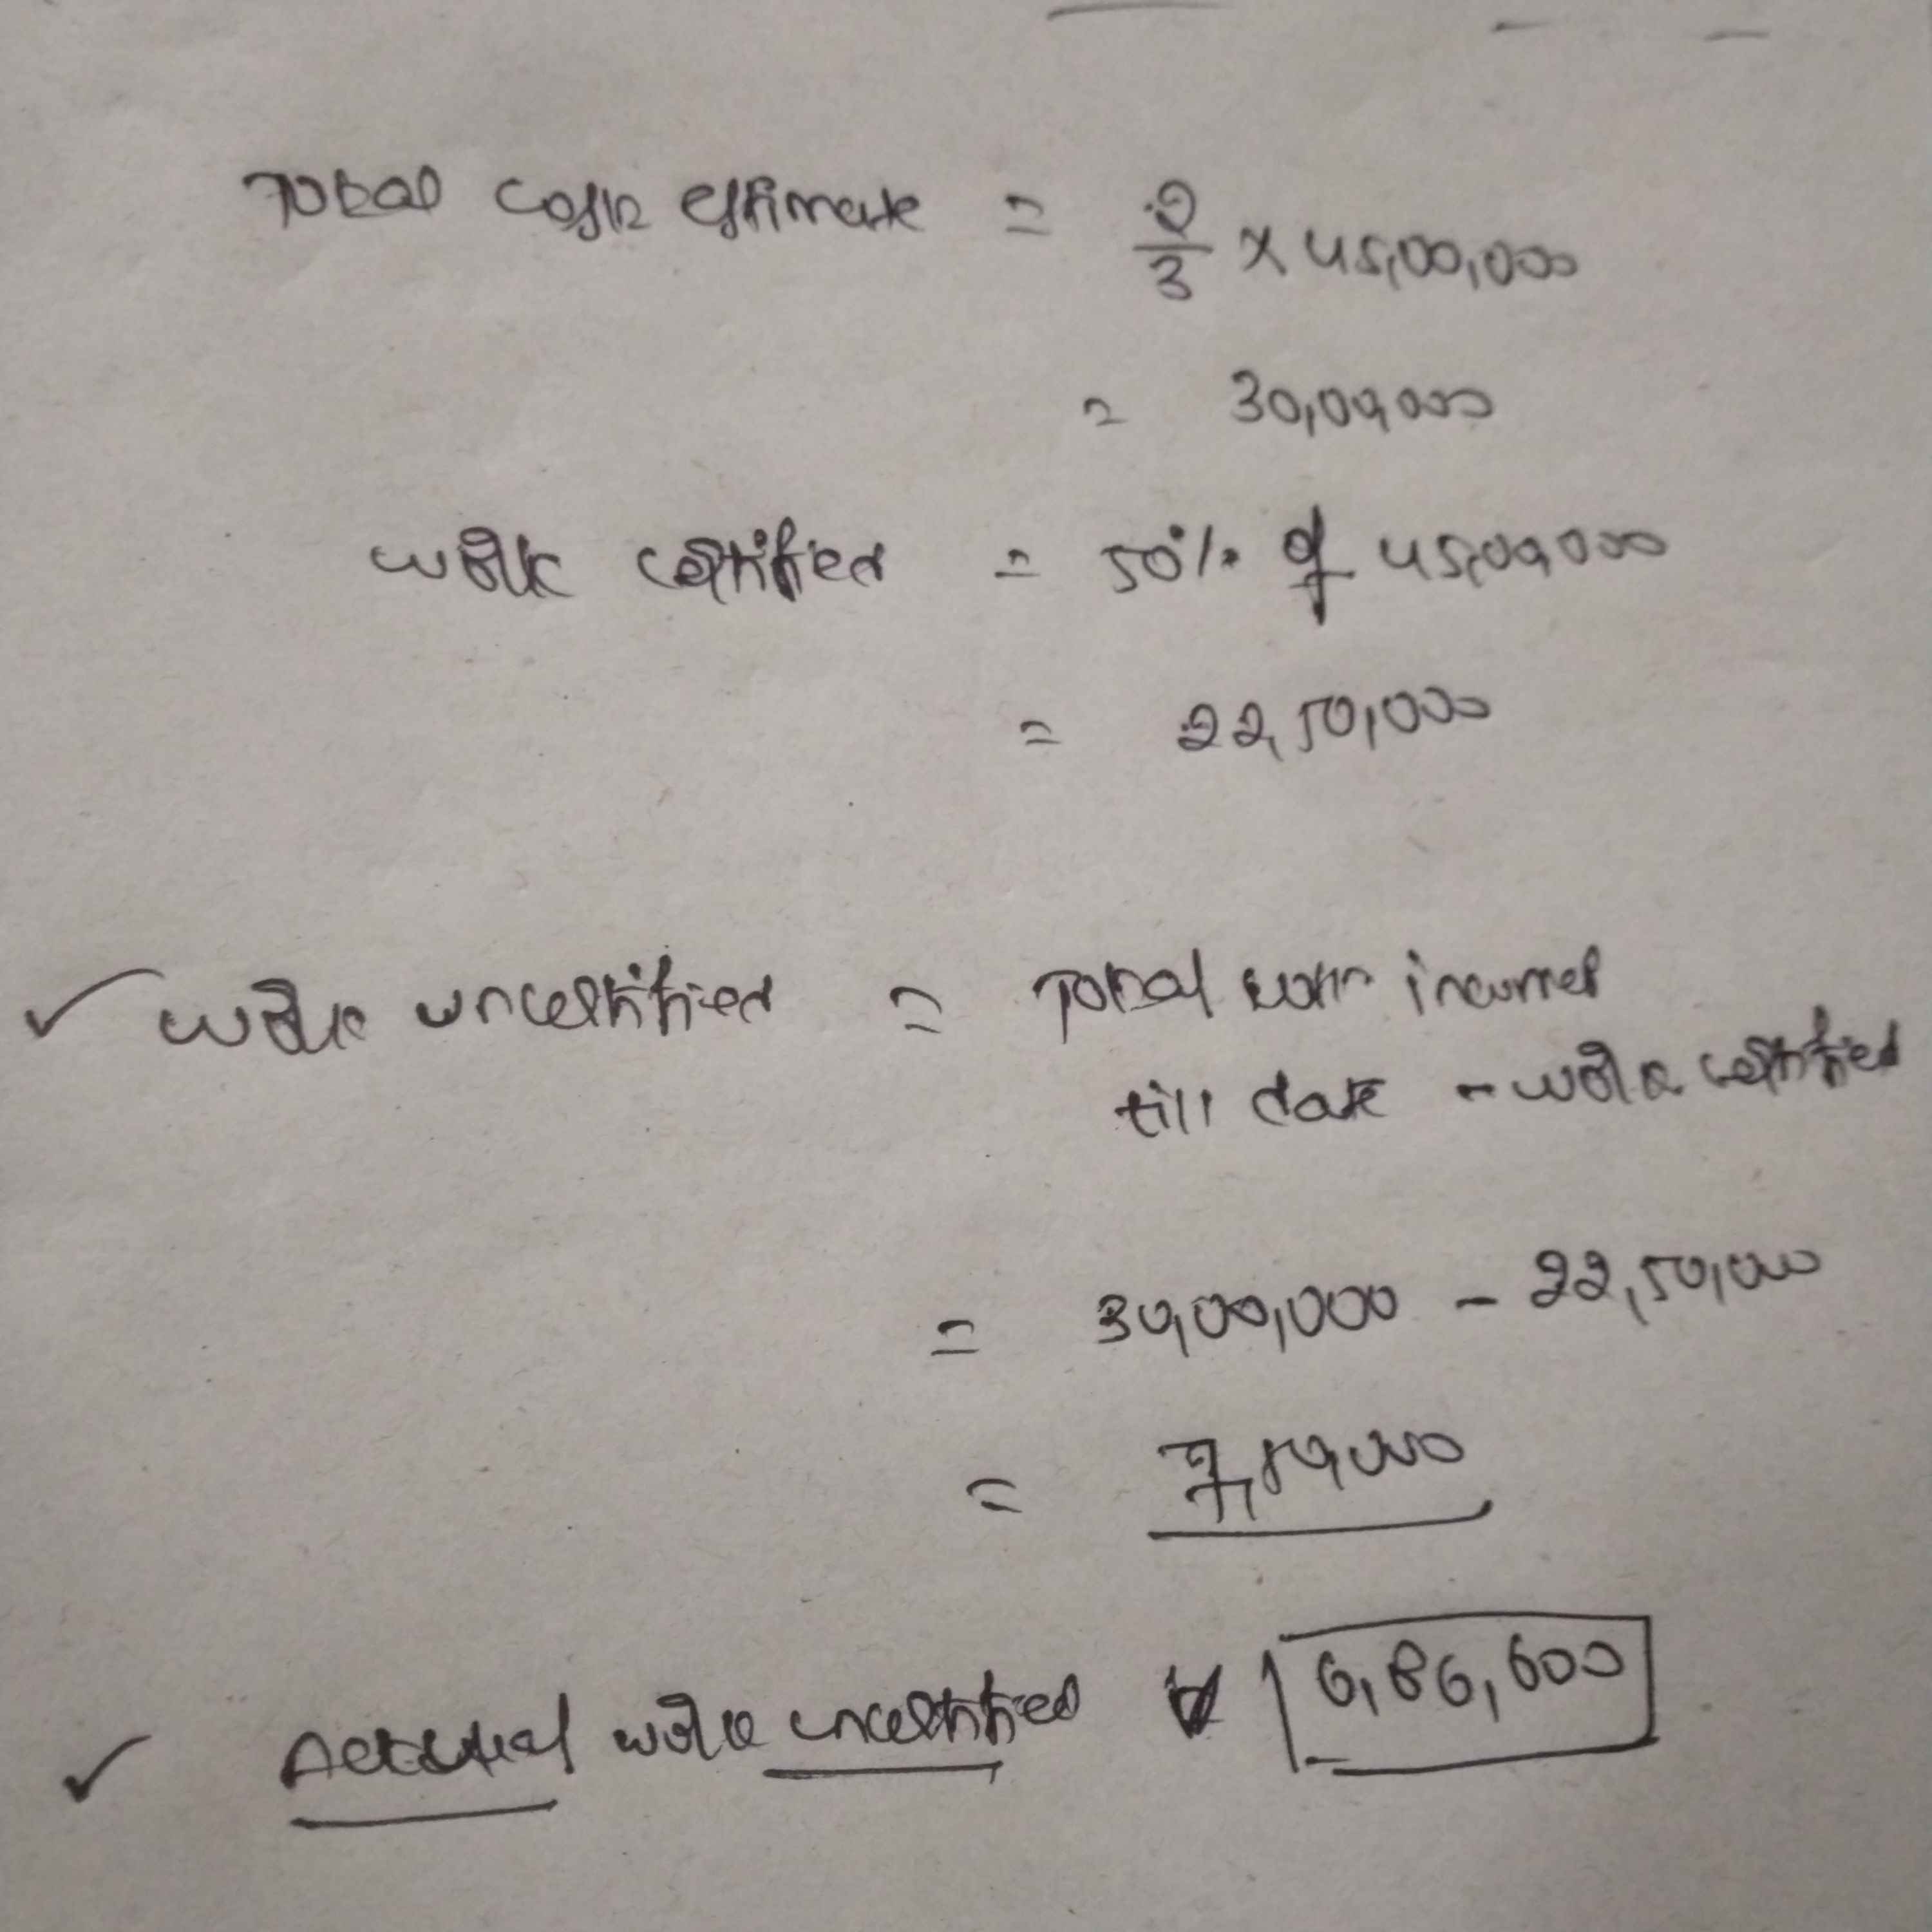 Total cost estimate = 2/3 x 45,00,000
= 30,00,000
Work certified = 50% of 45,00,000
= 22,50,000
✓ Work uncertified = Total incurred
till date - work certified
= 30,00,000 - 22,50,000
= 7,50,000
✓ Actual work uncertified 6,86,600